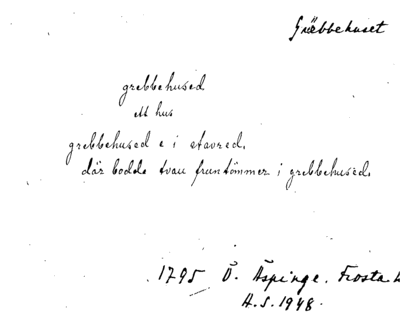 Gräbbehuset
grebbehused
ett hus
grebbehused e i stavred.
där bodde tvau fruntömmer i grebbehused.
1795 Ö. Äspinge. Frosta
A.S. 1948.